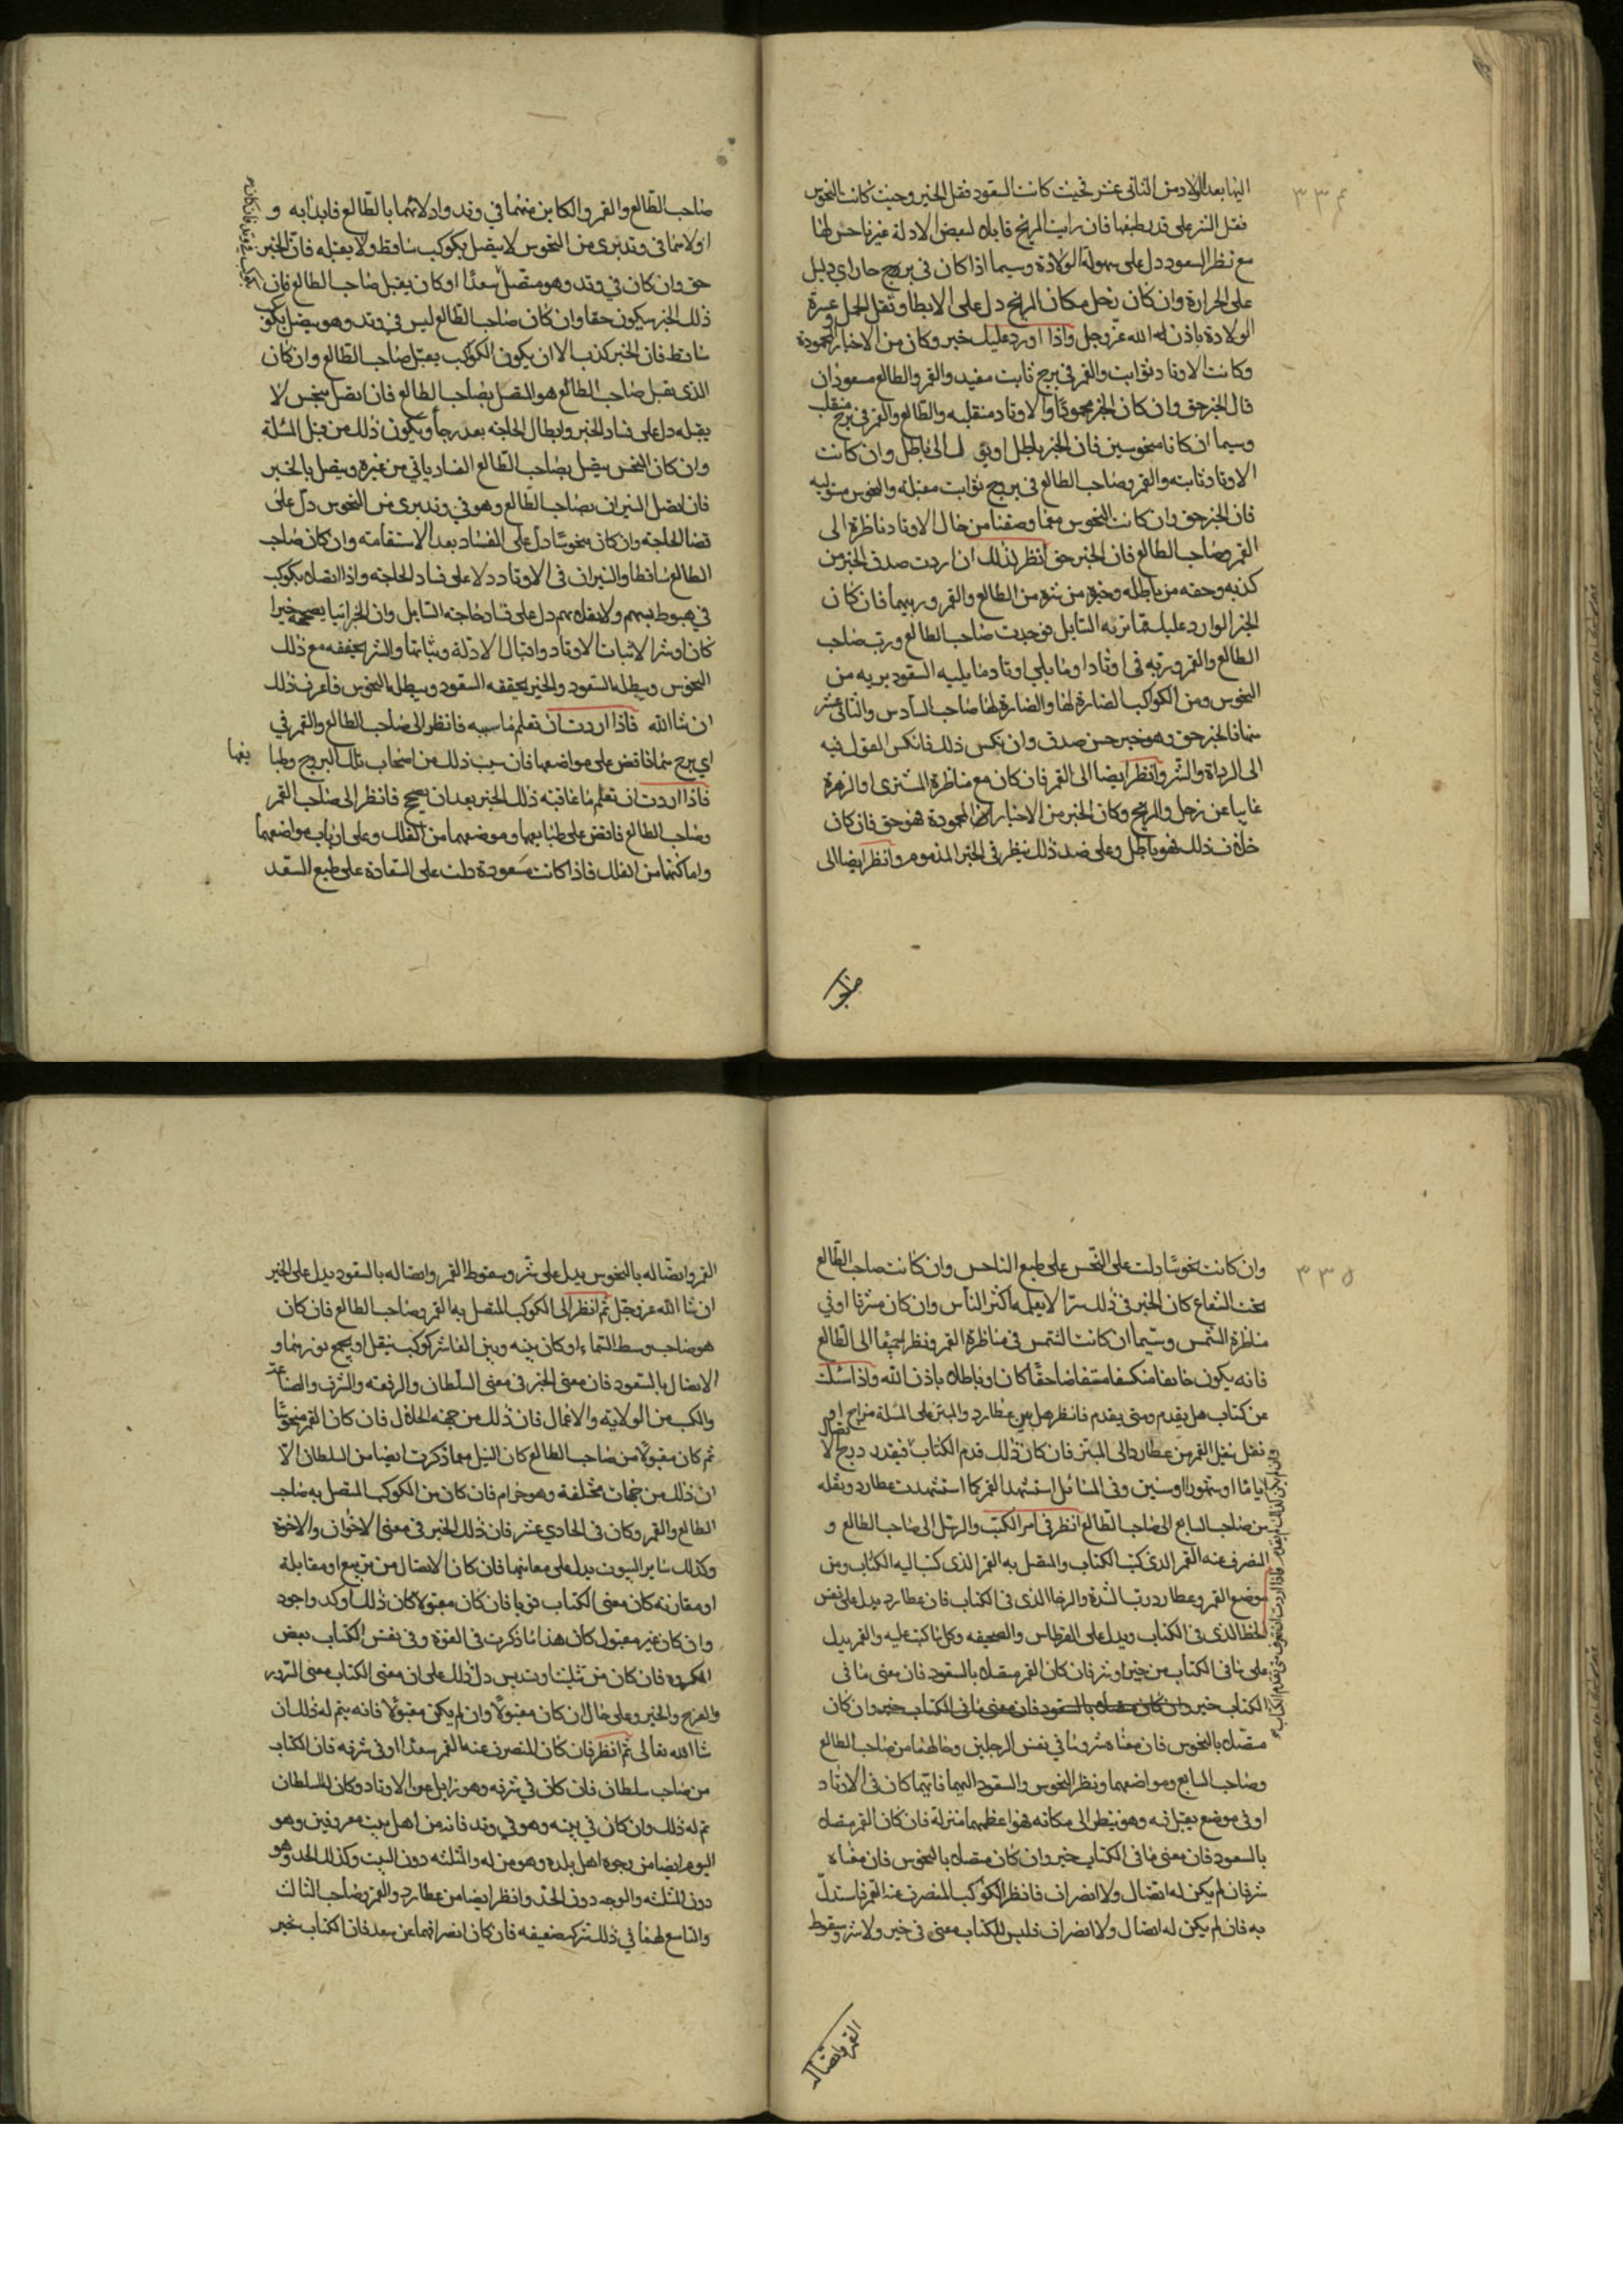 ٣٣٤
اليها بعد الاولاد من الثاني عشر فحيث كانت السعود فقل الخير وحيث كانت النحوس
فقل الشر على قدر طبعها فان رايت المريخ قابل لبعض الادلة غير ناحس لها
مع نظر السعود دل على سهولة الولادة وسيما اذا كان في برج حار اي دليل
على الحرارة وان كان زحل مكان المريخ دل على الابطا وثقل الحمل وعسرة
الولادة باذن الله عز وجل واذا اورد عليك خبر وكان من الاخبار المحمودة
وكانت الاوتاد ثوابت والقمر في برج ثابت والقمر والطالع مسعودان
قال الخبر حق وان كان الخبر محمودًا والاوتاد منقلبه والطالع والقمر في برج منقلب
وسيما ان كانا منحوسين فان الخبر باطل وان كانت
الاوتاد ثابته والقمر وصاحب الطالع في بروج ثوابت مقبلة والنحوس مستوليه
فان الخبر حق وان كانت النحوس معما وصفنا من حال الاوتاد ناظرة الى
القمر وصاحب الطالع فان الخبر حق انظر لذلك ان اردت صدق الخبر من
كذبه وحقه من باطله وخيره من شره من الطالع والقمر وربيهما فان كان
الخبر الوارد عليك مما تربه السايل فوجدت صاحب الطالع ورب صاحب
الطالع والقمر وربه في اوتاد او ما يلي اوتاد وما يليه السعود بريه من
النحوس ومن الكواكب الضارة لها والضارة لها صاحب السادس والثاني عشر
منها فالخبر حق وهو خبر حسن صدق وان نكس ذلك فانكس القول فيه
الى الرداة والشر وانظر ايضا الى القمر فان كان مع مناظرة المشتري او الزهرة
غايبا عن زحل والمريخ وكان الخبر من الاخبار المحمودة فهو حق فان كان
خلاف ذلك فهو باطل وعلى ضد ذلك ينظر في الخبر المذموم وانظر ايضا الى
صاحب الطالع والقمر والكاين منهما في وتد وادلاهما بالطالع فابدا به و
اولاهما في وتد بري من النحوس لا يتصل بكوكب ساقط ولا يقبله فان الخبر
حق وان كان في وتد وهو متصل سعدًا او كان يقبل صاحب الطالع فان
ذلك الخبر سيكون حقا وان كان صاحب الطالع ليس في وتد وهو يتصل بكوكب
ساقط فان الخبر كذب الا ان يكون الكوكب يقبل صاحب الطالع وان كان
الذي يقبل صاحب الطالع هو المتصل بصاحب الطالع فان اتصل بنحس لا
يقبله دل على فساد الخبر وابطال الحاجة بعد رجا ويكون ذلك من قبل المسئلة
وان كان النحس يتصل بصاحب الطالع الفساد ياتي من غيره ويتصل بالخبر
فان اتصل النيران بصاحب الطالع وهو في وتد بري من النحوس دل على
قضا الحاجة وان كان منحوسًا دل على الفساد بعد الاستقامة وان كان صاحب
الطالع ساقطا والنيران في الاوتاد دلا على فساد الحاجة واذا اتصلا بكوكب
في هبوطه ولا يقبلهم دل على فساد حاجة السايل وان الخبر
كان او شرا لاثبات الاوتاد واقبال الادلة وثباتها والشر يحققه مع ذلك
النحوس ويبطله السعود والخير يحققه السعود ويبطله النحوس فاعرف ذلك
ان شا الله فاذا اردت ان تعلم ما سببه فانظر الى صاحب الطالع والقمر في
اي برج هما فاقض على مواضعها فان سبب ذلك من اصحاب تلك البروج وطبا يعها
فاذا اردت ان تعلم ما عاقبة ذلك الخبر بعد ان يصح فانظر الى صاحب القمر
وصاحب الطالع فاقض على طبايعهما وموضعهما من الفلك وعلى ارباب مواضعهما
واماكنهما من الفلك فاذا كانت مسعودة دلت على السعادة على طبع السعد
٣٣٥
وان كانت نحوسًا دلت على النحس على طبع الناحس وان كانت صاحب الطالع
تحت الشعاع كان الخبر في ذلك سرًا لا يعلمه اكثر الناس وان كان مشرقا او في
مناظرة الشمس وسيما ان كانت الشمس في مناظرة القمر ونظرا جميعًا الى الطالع
فانه يكون منكشفا حقًا كان او باطلا باذن الله واذا سئلت
عن كتاب هل يقدم ومتى يقدم فانظر هل بين عطارد والمبتز على المسئلة مزاج او اتصال
نقل ينقل القمر من عطارد الى المبتز فان كان ذلك قدم الكتاب فبقدر درج
اياما او شهورا او سنين وفي المسائل استشهد القمر كما استشهدت عطارد ونقله
من صاحب السابع الى صاحب الطالع انظر في امر الكتب والرسل الى صاحب الطالع و
المنصرف عنه القمر الذي كتب الكتاب والمتصل به القمر الذي كتب اليه الكتاب ومن
موضع القمر وعطارد رب الشدة والرخا الذي في الكتاب فان عطارد يدل على نفس
الخط الذي في الكتاب ويدل على القرطاس والصحيفه وكل ما كتب عليه والقمر يدل
على ما في الكتاب من خير او شر فان كان القمر متصلا بالسعود فان معنى ما في
الكتاب خير وان كان متصلا بالسعود فان معنى ما في الكتاب خير وان كان
متصلا بالنحوس فان معناه شر وما في نفس الرجلين وحالهما من صاحب الطالع
وصاحب السابع ومواضعهما ونظر النحوس والسعود اليهما فايهما كان في الاوتاد
او في موضع يقبل فيه وهو ينظر الى مكانه فهو اعظمهما منزلة فان كان القمر متصلا
بالسعود فان معنى ما في الكتاب خير وان كان متصلا بالنحوس فان معناه
شر فان لم يكن له اتصال ولا انصراف فانظر الكوكب المنصرف عنه القمر فاستدل
به فان لم يكن له اتصال ولا انصراف فليس للكتاب معنى في خير ولا شر وسقوط
القمر واتصاله
القمر واتصاله بالنحوس يدل على شر وسقوط القمر واتصاله بالسعود يدل على الخير
ان شا الله عز وجل ثم انظر الى الكوكب المتصل به القمر وصاحب الطالع فان كان
هو صاحب وسط السماء او كان بينه وبين العاشر كوكب ينقل او يجمع نورهما و
الاتصال بالسعود فان معنى الخبر في معنى السلطان والرفعه والشرف والصناعة
والكسب من الولاية والاعمال فان ذلك من جهة الحلال فان كان القمر منحوسًا
ثم كان مقبولًا من صاحب الطالع كان النيل مما ذكرت ايضا من السلطان الا
ان ذلك من جهات مختلفة وهو حرام فان كان من الكوكب المتصل به صاحب
الطالع والقمر وكان في الحادي عشر فان ذلك الخبر في معنى الاخوان والاخوة
وكذلك ساير البيوت يدل على معانيها فان كان الاتصال من تربيع او مقابلة
او مقارنه كان معنى الكتاب قويا فان كان مقبولا كان ذلك اوكد واجود
وان كان غير مقبول كان هذا ما ذكرت في القوة وفي نفس الكتاب بعض
المكروه فان كان من تثليث او تسديس دل ذلك على ان معنى الكتاب معنى السرور
والفرح والخير وعلى حال ان كان مقبولًا وان لم يكن مقبولًا فانه يتم له ذلك ان
شا الله تعالى ثم انظر فان كان المنصرف عنه القمر سعدًا او في شرفه فان الكتاب
من صاحب سلطان فان كان في شرفه وهو زايل عن الاوتاد وكان للسلطان
ثم له ذلك وان كان في بيته وهو في وتد فانه من اهل بيت معروفين وهو
اليوم ايضا من وجوه اهل بلده وهو من له والمثلثه دون البيت وكذلك الحد وهو
دون المثلثه والوجه دون الحد وانظر ايضا من عطارد والقمر وصاحب الثالث
والتاسع لهما في ذلك شركه ضعيفه فان كان انصرافهما عن سعد فان الكتاب بخير